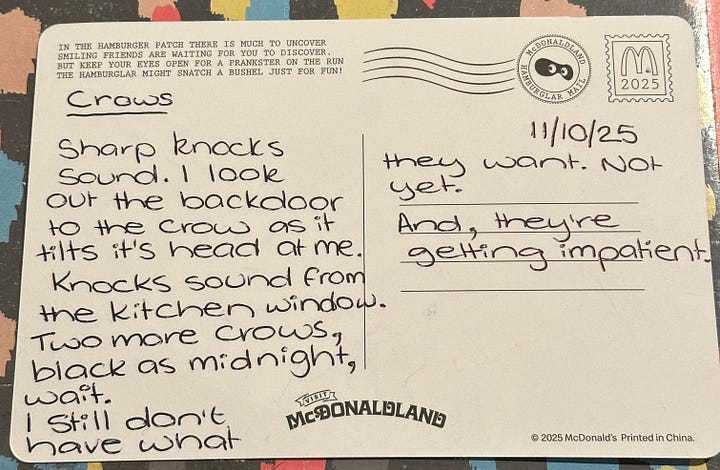 IN THE HAMBURGER PATCH THERE IS MUCH TO UNCOVER
SMILING FRIENDS ARE WAITING FOR YOU TO DISCOVER.
BUT KEEP YOUR EYES OPEN FOR A PRANKSTER ON THE RUN
THE HAMBURGLAR MIGHT SNATCH A BUSHEL JUST FOR FUN!
McDONALDLAND
HAMBURGLAR MAIL
2025
Crows
Sharp knocks
sound. I look
out the backdoor
to the crow as it
tilts it's head at me.
Knocks sound from
the kitchen window.
Two more crows,
black as midnight,
wait.
I still don't
have what
11/10/25
they want. Not
yet.
And, they're
getting impatient.
VISIT
McDONALDLAND
© 2025 McDonald's Printed in China.